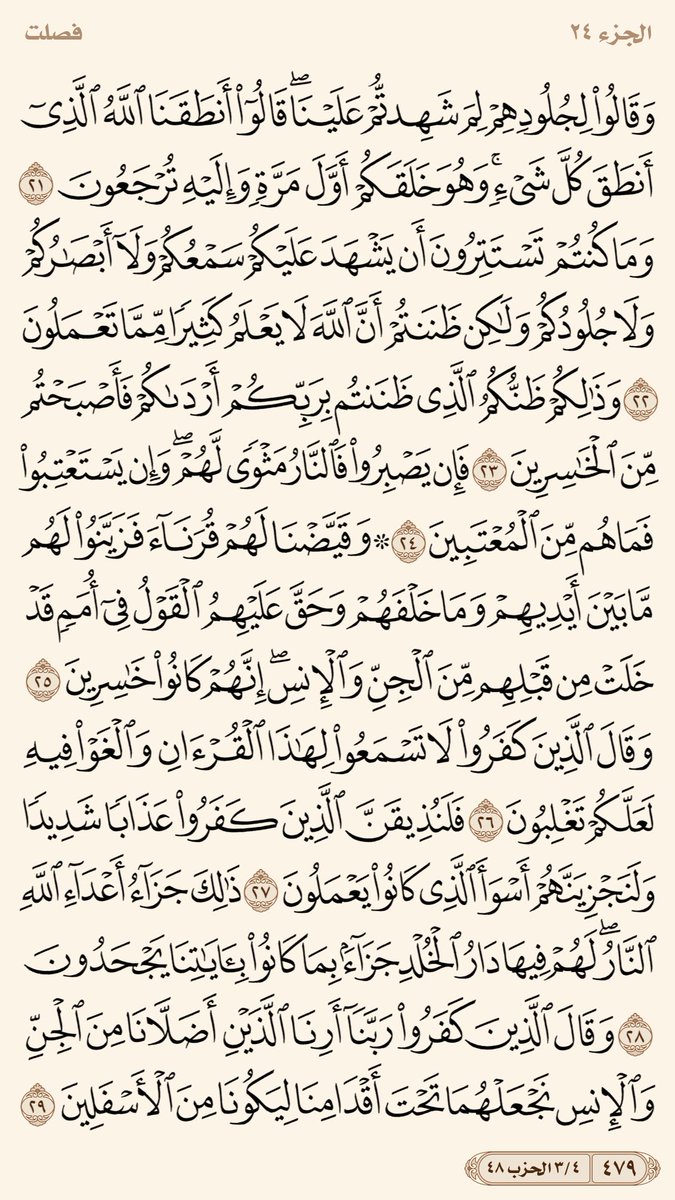 الجزء ٢٤
فصلت
وَقَالُوا۟ لِجُلُودِهِمْ لِمَ شَهِدتُّمْ عَلَيْنَا ۖ قَالُوٓا۟ أَنطَقَنَا ٱللَّهُ ٱلَّذِىٓ
أَنطَقَ كُلَّ شَىْءٍ ۚ وَهُوَ خَلَقَكُمْ أَوَّلَ مَرَّةٍ وَإِلَيْهِ تُرْجَعُونَ ٢١
وَمَا كُنتُمْ تَسْتَتِرُونَ أَن يَشْهَدَ عَلَيْكُمْ سَمْعُكُمْ وَلَآ أَبْصَـٰرُكُمْ
وَلَا جُلُودُكُمْ وَلَـٰكِن ظَنَنتُمْ أَنَّ ٱللَّهَ لَا يَعْلَمُ كَثِيرًا مِّمَّا تَعْمَلُونَ
٢٢ وَذَٰلِكُمْ ظَنُّكُمُ ٱلَّذِى ظَنَنتُم بِرَبِّكُمْ أَرْدَىٰكُمْ فَأَصْبَحْتُم
مِّنَ ٱلْخَـٰسِرِينَ ٢٣ فَإِن يَصْبِرُوا۟ فَٱلنَّارُ مَثْوًى لَّهُمْ ۖ وَإِن يَسْتَعْتِبُوا۟
فَمَا هُم مِّنَ ٱلْمُعْتَبِينَ ٢٤ ۞ وَقَيَّضْنَا لَهُمْ قُرَنَآءَ فَزَيَّنُوا۟ لَهُم
مَّا بَيْنَ أَيْدِيهِمْ وَمَا خَلْفَهُمْ وَحَقَّ عَلَيْهِمُ ٱلْقَوْلُ فِىٓ أُمَمٍ قَدْ
خَلَتْ مِن قَبْلِهِم مِّنَ ٱلْجِنِّ وَٱلْإِنسِ ۖ إِنَّهُمْ كَانُوا۟ خَـٰسِرِينَ ٢٥
وَقَالَ ٱلَّذِينَ كَفَرُوا۟ لَا تَسْمَعُوا۟ لِهَـٰذَا ٱلْقُرْءَانِ وَٱلْغَوْا۟ فِيهِ
لَعَلَّكُمْ تَغْلِبُونَ ٢٦ فَلَنُذِيقَنَّ ٱلَّذِينَ كَفَرُوا۟ عَذَابًا شَدِيدًا
وَلَنَجْزِيَنَّهُمْ أَسْوَأَ ٱلَّذِى كَانُوا۟ يَعْمَلُونَ ٢٧ ذَٰلِكَ جَزَآءُ أَعْدَآءِ ٱللَّهِ
ٱلنَّارُ ۖ لَهُمْ فِيهَا دَارُ ٱلْخُلْدِ جَزَآءًۢ بِمَا كَانُوا۟ بِـَٔايَـٰتِنَا يَجْحَدُونَ
٢٨ وَقَالَ ٱلَّذِينَ كَفَرُوا۟ رَبَّنَآ أَرِنَا ٱلَّذَيْنِ أَضَلَّانَا مِنَ ٱلْجِنِّ
وَٱلْإِنسِ نَجْعَلْهُمَا تَحْتَ أَقْدَامِنَا لِيَكُونَا مِنَ ٱلْأَسْفَلِينَ ٢٩
٤٧٩ ٣/٤ الحزب ٤٨